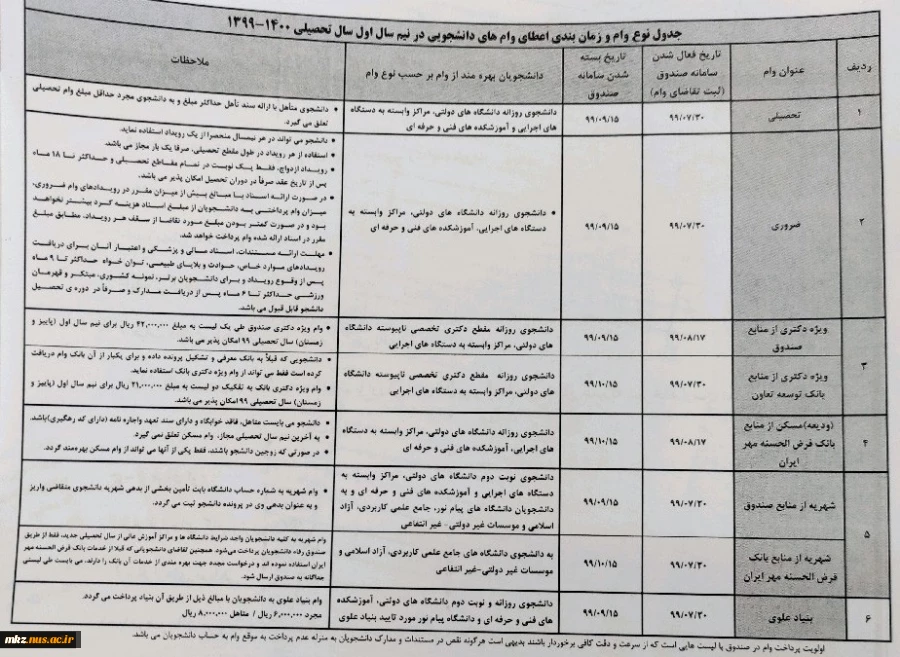 جدول نوع وام و زمان بندی اعطای وام های دانشجویی در نیم سال اول سال تحصیلی ۱۴۰۰-۱۳۹۹
ردیف
عنوان وام
تاریخ فعال شدن
سامانه صندوق
(ثبت تقاضای وام)
تاریخ بسته
شدن سامانه
صندوق
دانشجویان بهره مند از وام بر حسب نوع وام
ملاحظات
۱
تحصیلی
۹۹/۰۷/۳۰
۹۹/۰۹/۱۵
دانشجوی روزانه دانشگاه های دولتی، مراکز وابسته به دستگاه
های اجرایی و آموزشکده های فنی و حرفه ای
• دانشجوی متاهل با ارائه سند تأهل حداکثر مبلغ و به دانشجوی مجرد حداقل مبلغ وام تحصیلی
تعلق می گیرد.
۲
ضروری
۹۹/۰۷/۳۰
۹۹/۰۹/۱۵
• دانشجوی روزانه دانشگاه های دولتی، مراکز وابسته به
دستگاه های اجرایی، آموزشکده های فنی و حرفه ای
• دانشجو می تواند در هر نیمسال منحصرا از یک رویداد استفاده نماید.
• استفاده از هر رویداد در طول مقطع تحصیلی، صرفا یک بار مجاز می باشد.
• رویداد ازدواج، فقط یک نوبت در تمام مقاطع تحصیلی و حداکثر تا ۱۸ ماه
پس از تاریخ عقد صرفاً در دوران تحصیل امکان پذیر می باشد.
• در صورت ارائه اسناد با مبالغ بیش از میزان مقرر در رویدادهای وام ضروری،
میزان وام پرداختی به دانشجویان از مبلغ اسناد هزینه کرد بیشتر نخواهد
بود و در صورت کمتر بودن مبلغ مورد تقاضا از سقف هر رویداد، مطابق مبلغ
مقرر در اسناد ارائه شده وام پرداخت خواهد شد.
• مهلت ارائه مستندات، اسناد مالی و پزشکی و اعتبار آنان برای دریافت
رویدادهای موارد خاص، حوادث و بلایای طبیعی، توان خواه حداکثر تا ۹ ماه
پس از وقوع رویداد و برای دانشجویان برتر، نمونه کشوری، مبتکر و قهرمان
ورزشی حداکثر تا ۶ ماه پس از دریافت مدارک و صرفاً در دوره ی تحصیل
دانشجو قابل قبول می باشد.
۳
ویژه دکتری از منابع
صندوق
۹۹/۰۸/۱۷
۹۹/۰۹/۱۵
دانشجوی روزانه مقطع دکتری تخصصی ناپیوسته دانشگاه
های دولتی، مراکز وابسته به دستگاه های اجرایی
• وام ویژه دکتری صندوق طی یک لیست به مبلغ ۴۲,۰۰۰,۰۰۰ ریال برای نیم سال اول (پاییز و
زمستان) سال تحصیلی ۹۹ امکان پذیر می باشد.
ویژه دکتری از منابع
بانک توسعه تعاون
۹۹/۰۷/۳۰
۹۹/۱۰/۱۵
دانشجوی روزانه مقطع دکتری تخصصی ناپیوسته دانشگاه
های دولتی، مراکز وابسته به دستگاه های اجرایی
• دانشجویی که قبلاً به بانک معرفی و تشکیل پرونده داده و برای یکبار از آن بانک وام دریافت
کرده است فقط می تواند از وام ویژه دکتری بانک استفاده نماید.
• وام ویژه دکتری بانک به تفکیک دو لیست به مبلغ ۲۱,۰۰۰,۰۰۰ ریال برای نیم سال اول (پاییز و
زمستان) سال تحصیلی ۹۹ امکان پذیر می باشد.
۴
(ودیعه)مسکن از منابع
بانک قرض الحسنه مهر
ایران
۹۹/۰۸/۱۷
۹۹/۱۰/۱۵
دانشجوی روزانه دانشگاه های دولتی، مراکز وابسته به دستگاه
های اجرایی، آموزشکده های فنی و حرفه ای
• دانشجو می بایست متاهل، فاقد خوابگاه و دارای سند تعهد واجاره نامه (دارای کد رهگیری)باشد.
• به آخرین نیم سال تحصیلی مجاز، وام مسکن تعلق نمی گیرد.
• در صورتی که زوجین دانشجو باشند، فقط یکی از آنها می تواند از وام مسکن بهره‌مند گردد.
۵
شهریه از منابع صندوق
۹۹/۰۷/۳۰
۹۹/۰۹/۱۵
دانشجوی نوبت دوم دانشگاه های دولتی، مراکز وابسته به
دستگاه های اجرایی و آموزشکده های فنی و حرفه ای و به
دانشجویان دانشگاه های پیام نور، جامع علمی کاربردی، آزاد
اسلامی و موسسات غیر دولتی - غیر انتفاعی
• وام شهریه به شماره حساب دانشگاه بابت تأمین بخشی از بدهی شهریه دانشجوی متقاضی واریز
و به عنوان بدهی وی در پرونده دانشجو ثبت می گردد.
شهریه از منابع بانک
قرض الحسنه مهر ایران
۹۹/۰۷/۳۰
۹۹/۱۰/۱۵
به دانشجوی دانشگاه های جامع علمی کاربردی، آزاد اسلامی و
موسسات غیر دولتی-غیر انتفاعی
وام شهریه به کلیه دانشجویان واجد شرایط دانشگاه ها و مراکز آموزش عالی از سال تحصیلی جدید، فقط از طریق
صندوق رفاه دانشجویان پرداخت می‌شود. همچنین تقاضای دانشجویانی که قبلا از خدمات بانک قرض الحسنه مهر
ایران استفاده نموده اند و درخواست مجدد جهت بهره مندی از خدمات آن بانک را دارند، می بایست طی لیستی
جداگانه به صندوق ارسال شود.
۶
بنیاد علوی
۹۹/۰۷/۳۰
۹۹/۰۹/۱۵
دانشجوی روزانه و نوبت دوم دانشگاه های دولتی، آموزشکده
های فنی و حرفه ای و دانشگاه پیام نور مورد تایید بنیاد علوی
وام بنیاد علوی به دانشجویان با مبالغ ذیل از طریق آن بنیاد پرداخت می گردد.
مجرد ۶,۰۰۰,۰۰۰ ریال / متاهل ۸,۰۰۰,۰۰۰ ریال
اولویت پرداخت وام در صندوق با لیست هایی است که از سرعت و دقت کافی برخوردار باشند بدیهی است هرگونه نقص در مستندات و مدارک دانشجویان به منزله عدم پرداخت به موقع وام به حساب دانشجویان می باشد.
mkz.nus.ac.ir